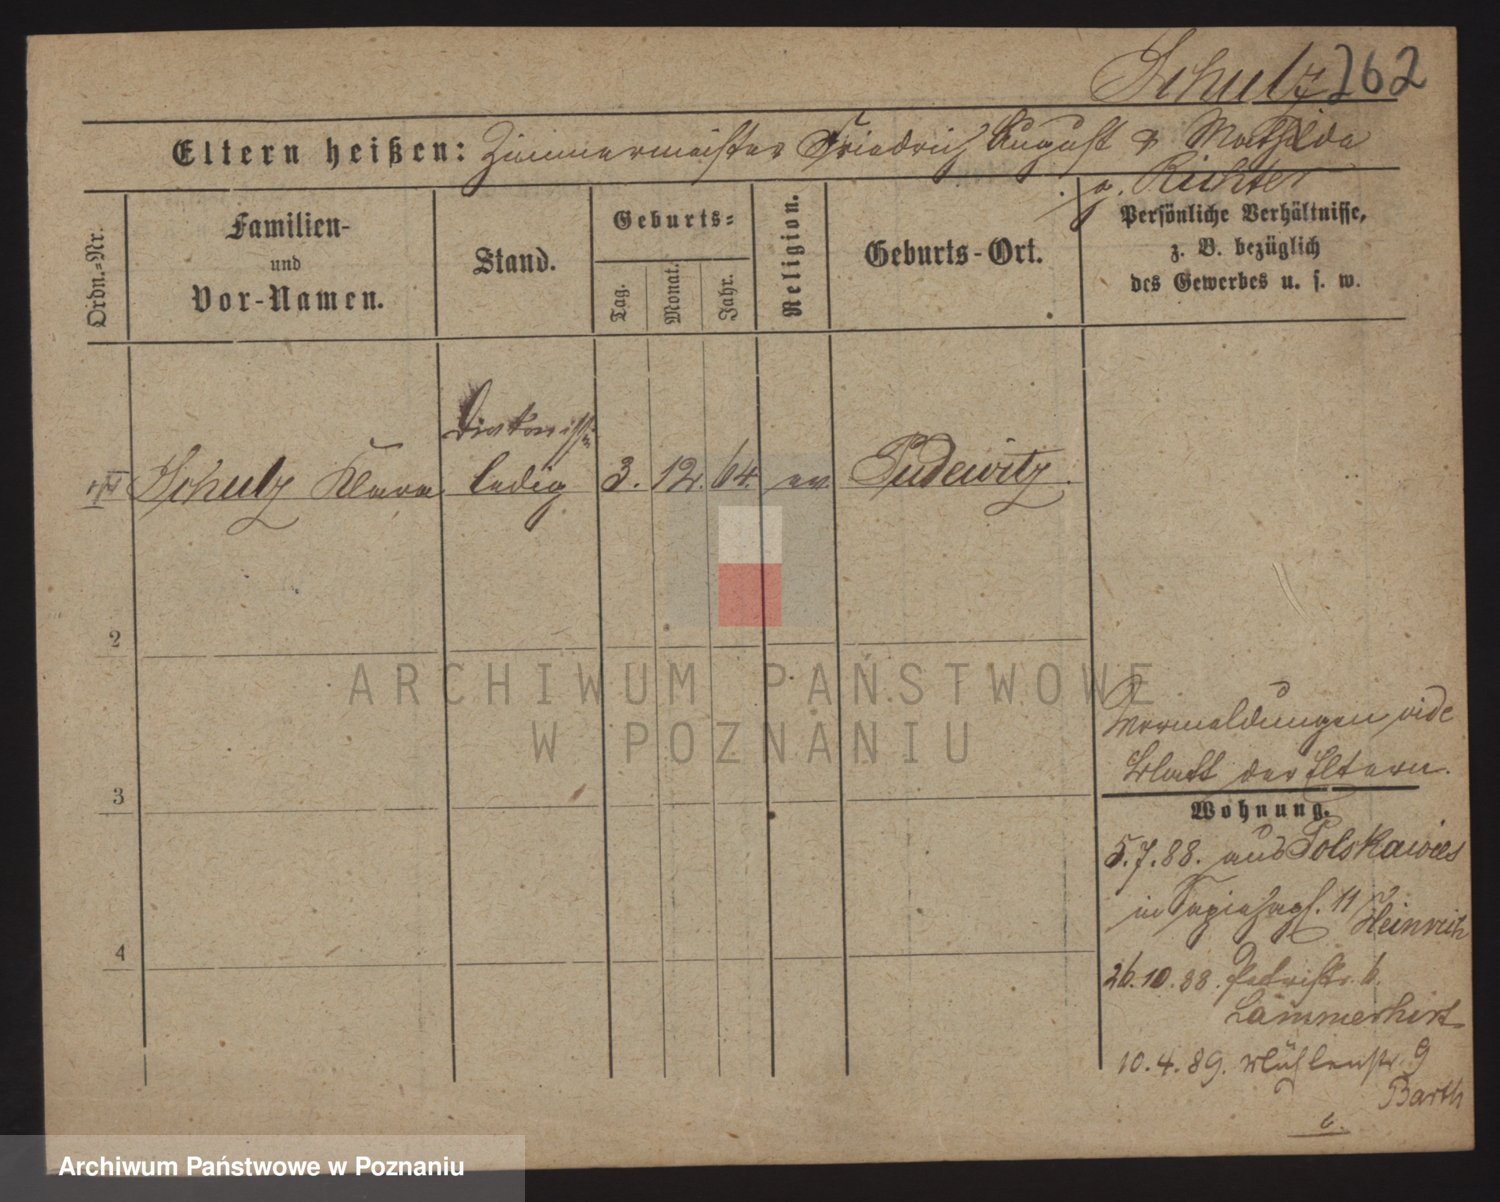 Schulz 262
Eltern heißen: Zimmermeister Friedrich August & Mathilde
g. Richter
Ordn.=Nr.
Familien-
und
Vor-Namen.
Stand.
Geburts=
Tag.
Monat.
Jahr.
Religion.
Geburts-Ort.
Persönliche Verhältnisse,
z. B. bezüglich
des Gewerbes u. s. w.
Diakonissin
Schulz Klara ledig 3. 12. 64. ev. Pudewitz.
2
3
4
ARCHIWUM PAŃSTWOWE
W POZNANIU
Vermeldungen vide
Blatt der Eltern.
Wohnung.
5.7.88. aus Polskawies
in 11/ Heinrich
26.10.88. Petristr. 6.
Lämmerhirt
10.4.89. Mühlenstr. 9
Barth
6.
Archiwum Państwowe w Poznaniu